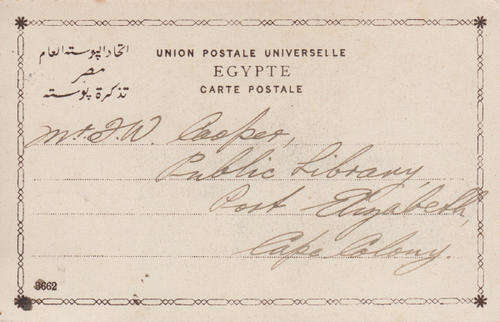 اتحاد الپوسته العام
مصر
تذكرة پوسته
UNION POSTALE UNIVERSELLE
EGYPTE
CARTE POSTALE
Mr. F. W. Cooper,
Public Library,
Port Elizabeth,
Cape Colony.
8662